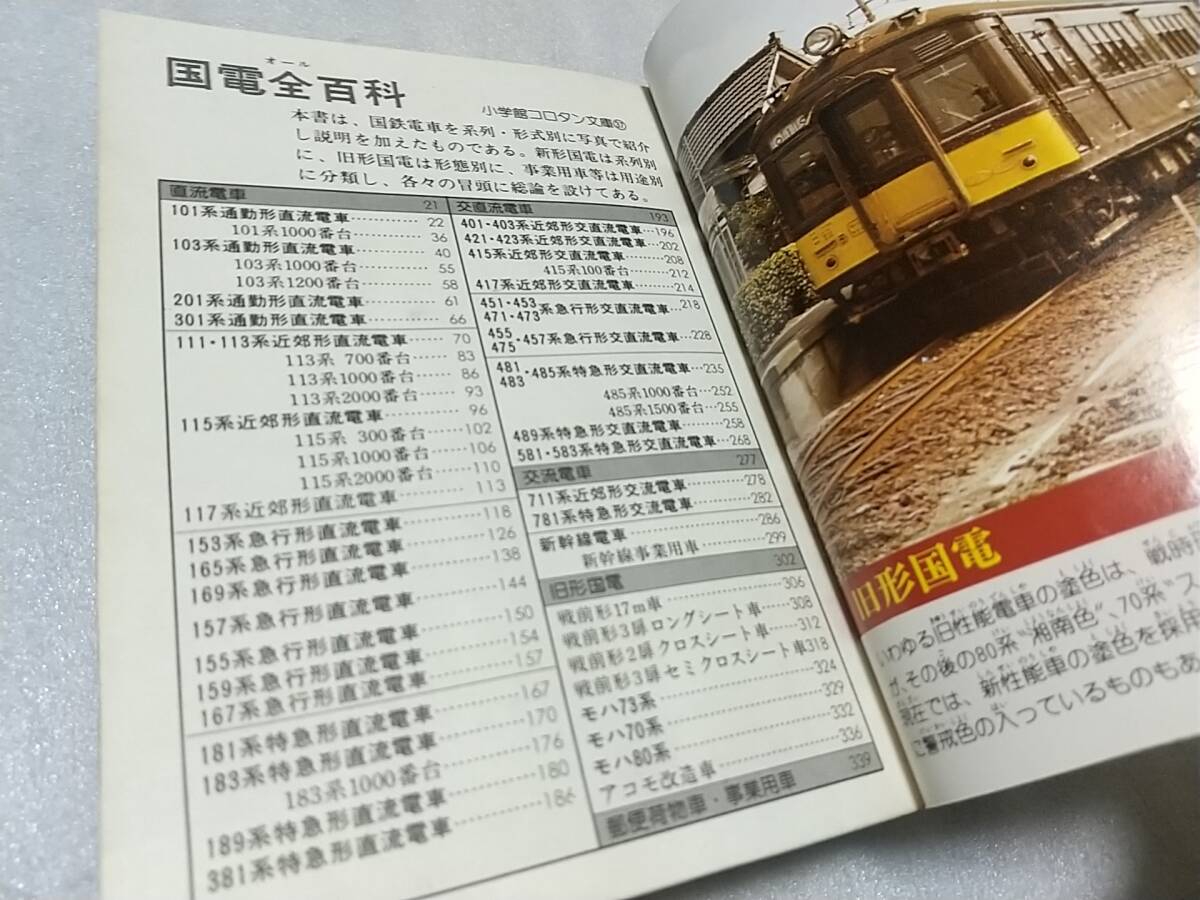 オール
国電全百科
小学館コロタン文庫㊲
本書は、国鉄電車を系列・形式別に写真で紹介
し説明を加えたものである。新形国電は系列別
に、旧形国電は形態別に、事業用車等は用途別
に分類し、各々の冒頭に総論を設けてある。
直流電車 21
101系通勤形直流電車………… 22
101系1000番台………… 36
103系通勤形直流電車………… 40
103系1000番台………… 55
103系1200番台………… 58
201系通勤形直流電車………… 61
301系通勤形直流電車………… 66
111・113系近郊形直流電車…… 70
113系 700番台…… 83
113系1000番台…… 86
113系2000番台…… 93
115系近郊形直流電車………… 96
115系 300番台……102
115系1000番台……106
115系2000番台……110
117系近郊形直流電車…………113
153系急行形直流電車…………118
165系急行形直流電車…………126
169系急行形直流電車…………138
157系急行形直流電車…………144
155系急行形直流電車…………150
159系急行形直流電車…………154
167系急行形直流電車…………157
181系特急形直流電車…………167
183系特急形直流電車…………170
183系1000番台…………176
189系特急形直流電車…………180
381系特急形直流電車…………186
交直流電車 193
401・403系近郊形交直流電車…196
421・423系近郊形交直流電車…202
415系近郊形交直流電車………208
415系100番台…………212
417系近郊形交直流電車………214
451・453
471・473系急行形交直流電車…218
455
475・457系急行形交直流電車…228
481
483・485系特急形交直流電車…235
485系1000番台…252
485系1500番台…255
489系特急形交直流電車………258
581・583系特急形交直流電車…268
交流電車 277
711系近郊形交流電車…………278
781系特急形交流電車…………282
新幹線電車………………………286
新幹線事業用車……………299
旧形国電 302
戦前形17m車……………………306
戦前形3扉ロングシート車……308
戦前形2扉クロスシート車……312
戦前形3扉セミクロスシート車318
モハ73系…………………………324
モハ70系…………………………329
モハ80系…………………………332
アコモ改造車……………………336
郵便荷物車・事業用車 339
旧形国電
いわゆる旧性能電車の塗色は、戦時
が、その後の80系“湘南色”、70系“ス
現在では、新性能車の塗色を採用
に警戒色の入っているものもあ